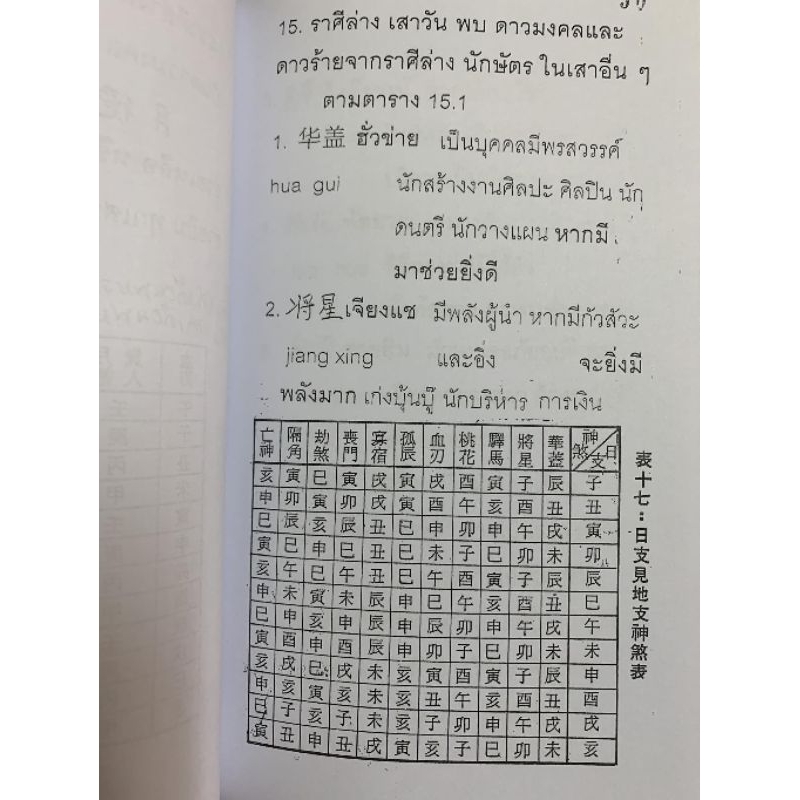 15. ราศีล่าง เสาวัน พบ ดาวมงคลและ
ดาวร้ายจากราศีล่าง นักษัตร ในเสาอื่น ๆ
ตามตาราง 15.1
1. 华盖 ฮั่วข่าย เป็นบุคคลมีพรสวรรค์
hua gui นักสร้างงานศิลปะ ศิลปิน นัก
ดนตรี นักวางแผน หากมี
มาช่วยยิ่งดี
2. 将星 เจียงแช มีพลังผู้นำ หากมีกัวสัวะ
jiang xing และอิ่ง จะยิ่งมี
พลังมาก เก่งบุ้นบู๊ นักบริหาร การเงิน
亡神 隔角 劫煞 喪門 寡宿 孤辰 血刃 桃花 驛馬 將星 華蓋 神煞 日支
亥 寅 巳 寅 戌 寅 戌 酉 寅 子 辰 子
申 卯 寅 卯 戌 寅 酉 午 亥 酉 丑 丑
巳 辰 亥 辰 丑 巳 申 卯 申 午 戌 寅
寅 巳 申 巳 丑 巳 未 子 巳 卯 未 卯
亥 午 巳 午 丑 巳 午 酉 寅 子 辰 辰
申 未 寅 未 辰 申 巳 午 亥 酉 丑 巳
巳 申 亥 申 辰 申 辰 卯 申 午 戌 午
寅 酉 申 酉 辰 申 卯 子 巳 卯 未 未
亥 戌 巳 戌 未 亥 寅 酉 寅 子 辰 申
申 亥 寅 亥 未 亥 丑 午 亥 酉 丑 酉
巳 子 亥 子 未 亥 子 卯 申 午 戌 戌
寅 丑 申 丑 戌 寅 亥 子 巳 卯 未 亥
表十七：日支見地支神煞表